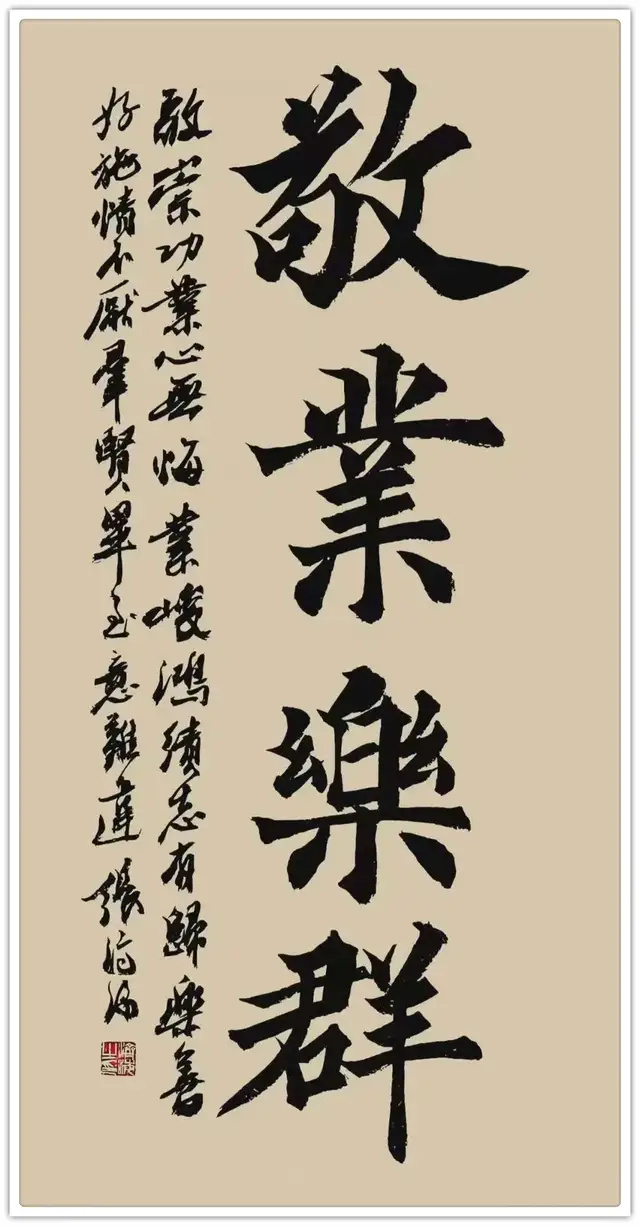 敬業樂群
敬崇功業心無悔業峻鴻績志有歸樂善
好施情不厭羣賢畢至意難違張海